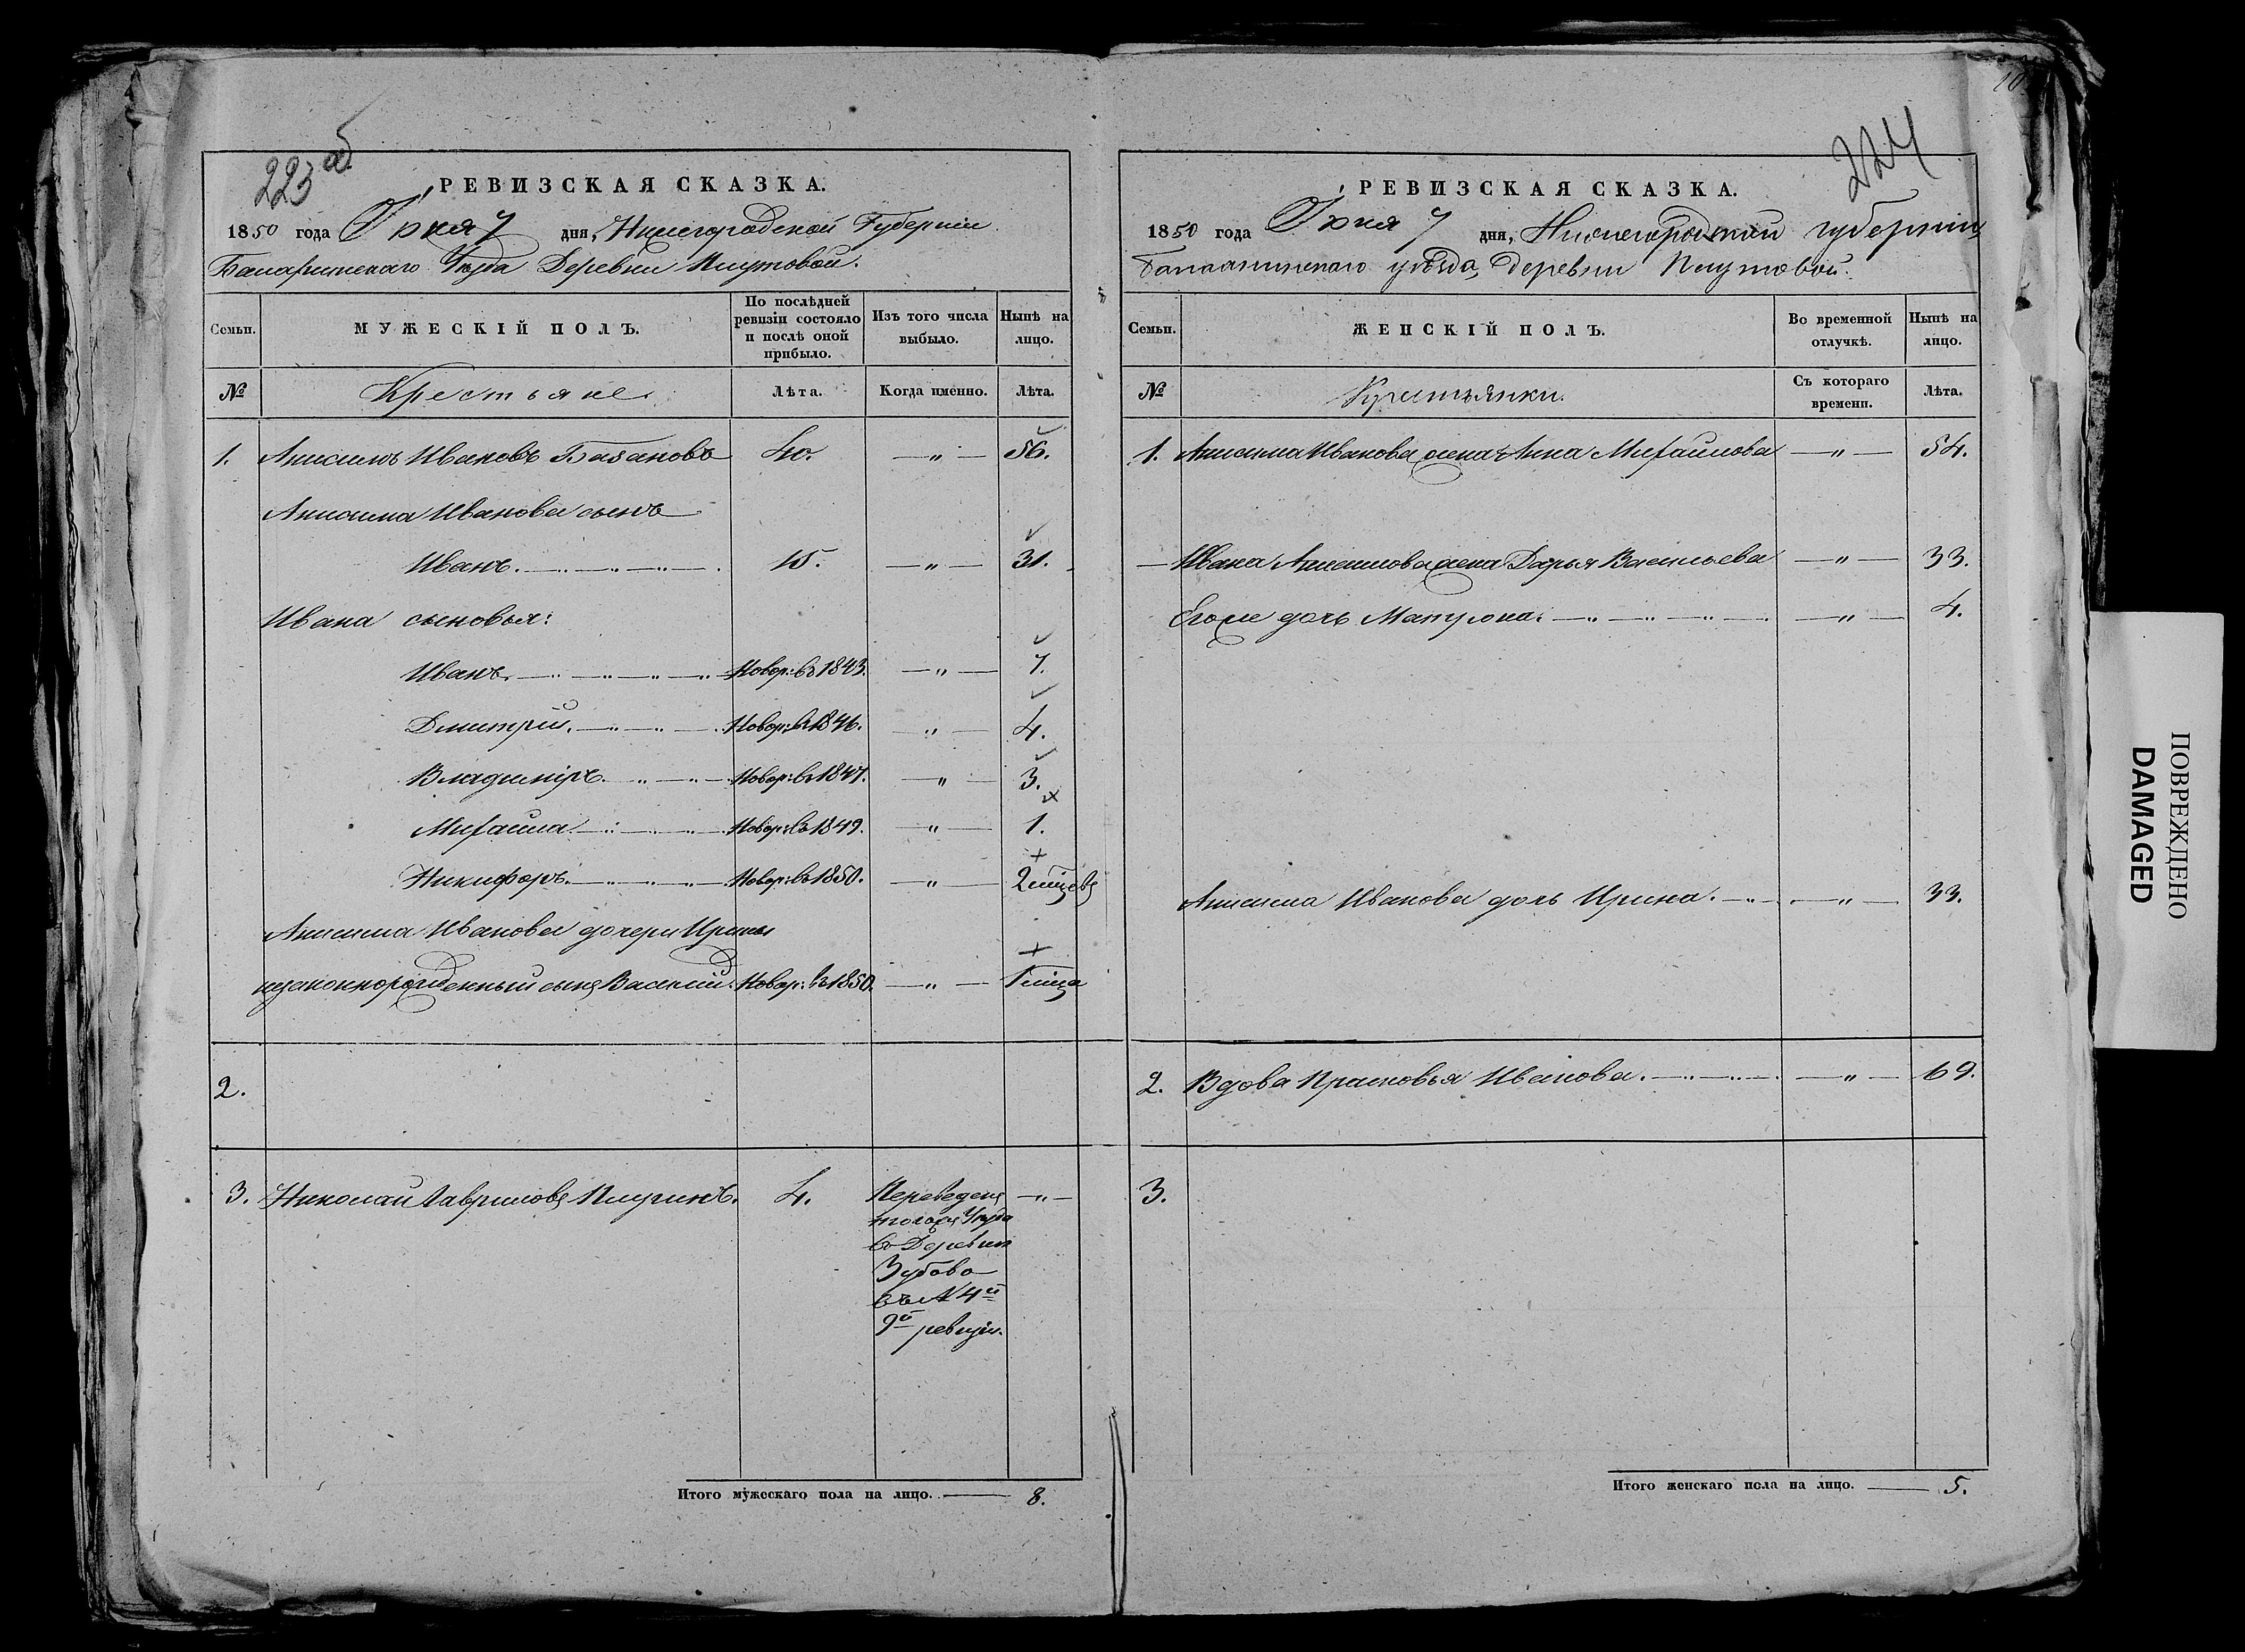 223 об.
РЕВИЗСКАЯ СКАЗКА.
1850 года Іюня 7 дня, Нижегородской Губерніи
Балахнинскаго Уѣзда Деревни Плутовой.
Семьи.
МУЖЕСКІЙ ПОЛЪ.
По послѣдней ревизіи состояло и послѣ оной прибыло.
Изъ того числа выбыло.
Нынѣ на лицо.
№
Крестьяне.
Лѣта.
Когда именно.
Лѣта.
1. Анисимъ Ивановъ Бабановъ 40. —"— 56.
Анисима Иванова сынъ
Иванъ. 15. —"— 31.
Ивана сыновья:
Иванъ. Новор: въ 1843. —"— 7.
Дмитрій. Новор: въ 1846. —"— 4.
Владиміръ. Новор: въ 1847. —"— 3.
Михаила Новор: въ 1849. —"— 1.
Никифоръ. Новор: въ 1850. —"— 2 мѣсѣцевъ
Анисима Иванова дочери Ирины
незаконнорожденный сынъ Василій. Новор: въ 1850. —"— 1 мѣсяца
2.
3. Николай Гавриловъ Пичугинъ. 4. Переведенъ —"—
тогожъ Уѣзда
въ Деревню
Зубово
въ № 4й
9й ревизіи.
Итого мужескаго пола на лицо. — 8.
224
РЕВИЗСКАЯ СКАЗКА.
1850 года Іюня 7 дня, Нижегородской губерніи,
Балахнинскаго уѣзда, деревни Плутовой.
Семьи.
ЖЕНСКІЙ ПОЛЪ.
Во временной отлучкѣ.
Нынѣ на лицо.
№
Крестьянки.
Съ котораго времени.
Лѣта.
1. Анисима Иванова жена Анна Михайлова —"— 54.
Ивана Анисимова жена Дарья Васильева —"— 33.
Егоже дочь Матрона. —"— 4.
Анисима Иванова дочь Ирина. —"— 33.
2. Вдова Прасковья Иванова. —"— 69.
3.
Итого женскаго пола на лицо. — 5.
ПОВРЕЖДЕНО
DAMAGED